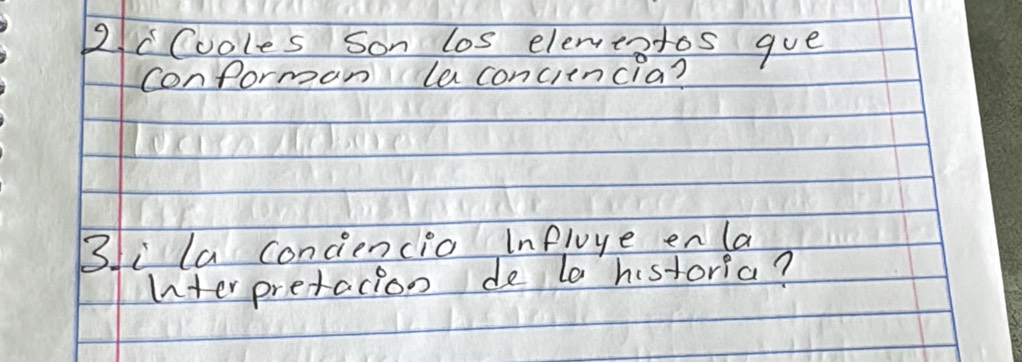 2. ¿Cuales son los elementos que
conforman la conciencia?
3. ¿ la conciencia influye en la
interpretacion de la historia?